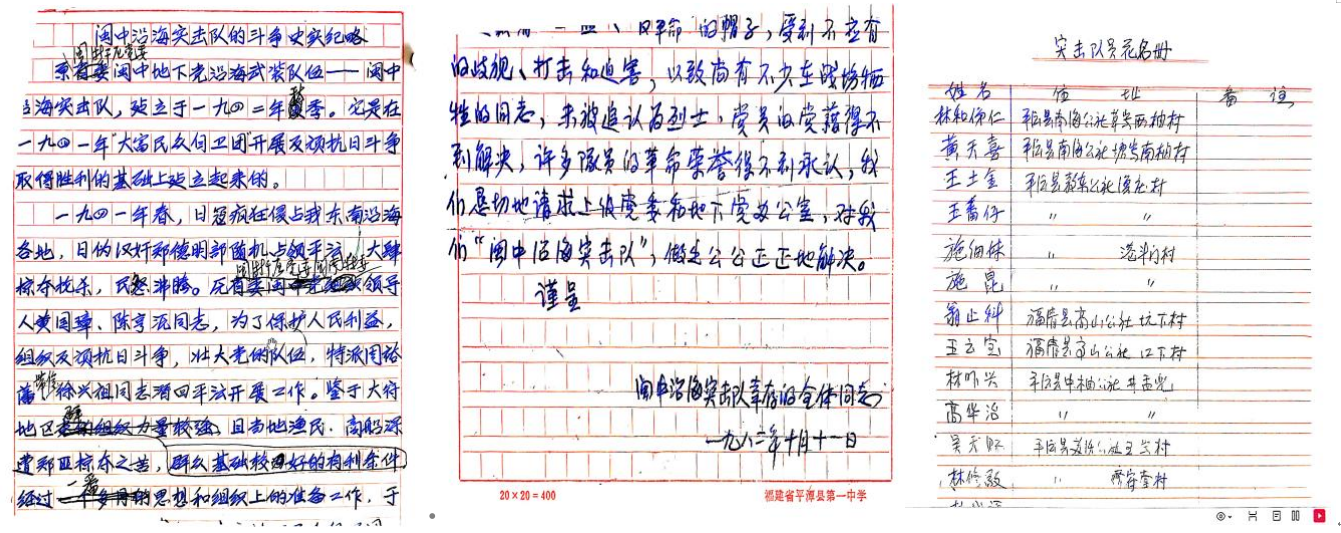 闽中沿海突击队的斗争史实纪略
闽中地下党沿海武装队伍——闽中
沿海突击队，建立于一九四二年季。它是在
一九四一年"大富民众自卫团"开展反顽抗日斗争
取得胜利的基础上建立起来的。
一九四一年春，日寇疯狂侵占我东南沿海
各地，日伪汉奸郑德明部随机占领平潭，大肆
掠夺枪杀，民怨沸腾。领导
人黄国璋、陈亨源同志，为了保护人民利益，
组织反顽抗日斗争，壮大党的队伍，特派周裕
藩徐兴祖同志潜回平潭开展工作。鉴于大富
地区且当地渔民、商船深
遭郑匪掠夺之苦，群众基础较好的有利条件
经过一番思想和组织上的准备工作，于
反革命"的帽子，受到不应有
的歧视、打击和迫害，以致尚有不少在战场牺
牲的同志，未被追认为烈士，党员的党籍得不
到解决，许多队员的革命荣誉得不到承认，我
们恳切地请求上级党委和地下党办公室，对我
们"闽中沿海突击队"，做出公公正正地解决。
谨呈
闽中沿海突击队幸存的全体同志
一九八二年十月十一日
20×20=400 福建省平潭县第一中学
突击队员花名册
姓名 住址 备注
林和伊仁 平潭县南海公社
黄天喜 平潭县南海公社
王土金 平潭县敖东公社
王番仔 〃 〃
施细妹 〃
施昆 〃 〃
翁止科 福清县高山公社坑下村
王立宝 福清县高山公社江下村
林吓兴 平潭县中楼公社
高华治 〃 〃
吴天 平潭县
林修敦 〃